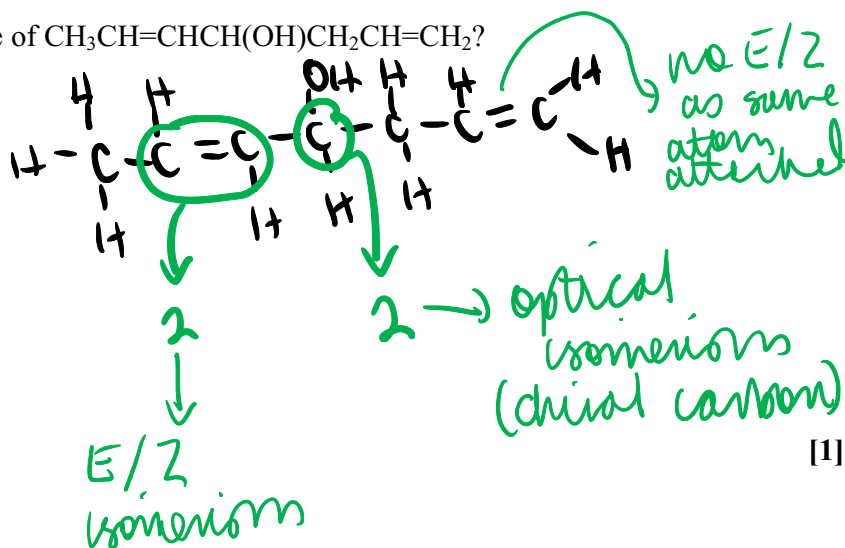 e of CH₃CH=CHCH(OH)CH₂CH=CH₂?
OH H H H
H H
H-C-C=C-C-C-C=C
H
H H H H
no E/Z
as same
atom
attached
2
2 → optical
isomerism
(chiral carbon)
[1]
E/Z
isomerism